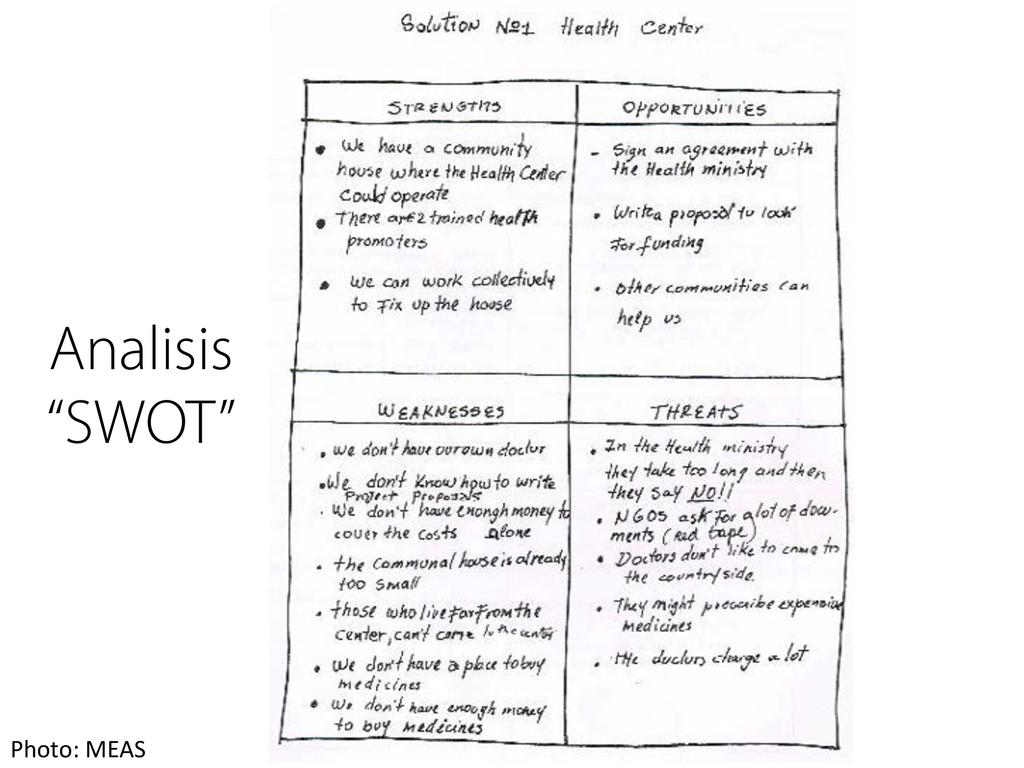 Solution Nº1 Health Center
STRENGTHS
We have a community
house where the Health Center
Could operate
There are 2 trained health
promoters
We can work collectively
to Fix up the house
OPPORTUNITIES
- Sign an agreement with
the Health ministry
• Write a proposal to look
For funding
• Other communities can
help us
Analisis
“SWOT”
WEAKNESSES
• we don't have our own doctor
• We don't Know how to write
Project Proposals
• We don't have enough money to
cover the costs alone
• the communal house is already
too small
• those who live far From the
center, can't come to the center
• We don't have a place to buy
medicines
• We don't have enough money
to buy medicines
THREATS
• In the Health ministry
they take too long and then
they say NO!!
• NGOS ask For a lot of docu-
ments (Red tape)
• Doctors don't like to come to
the countryside.
• They might prescribe expensive
medicines
• the doctors charge a lot
Photo: MEAS